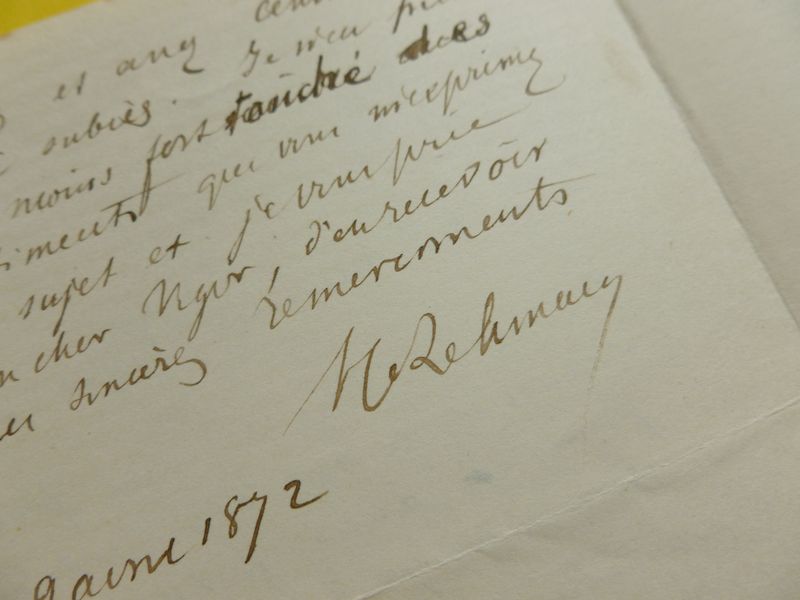 et
subies. Je n'en
moins fort touché des
timents que vous m'exprimez
sujet et je vous prie
cher Vgor, d'en recevoir
sincères remerciments
H Lehmann
9 avril 1872